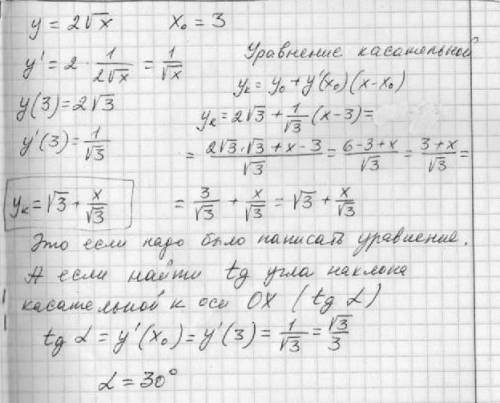 y = 2√x    x₀ = 3
y' = 2 · 1/(2√x) = 1/√x
Уравнение касательной
yₖ = y₀ + y'(x₀)(x-x₀)
y(3) = 2√3
yₖ = 2√3 + 1/√3 (x-3) =
y'(3) = 1/√3
= (2√3·√3 + x - 3)/√3 = (6-3+x)/√3 = (3+x)/√3 =
yₖ = √3 + x/√3
= 3/√3 + x/√3 = √3 + x/√3
Это если надо было написать уравнение.
А если найти tg угла наклона
касательной к оси OX (tg α)
tg α = y'(x₀) = y'(3) = 1/√3 = √3/3
α = 30°